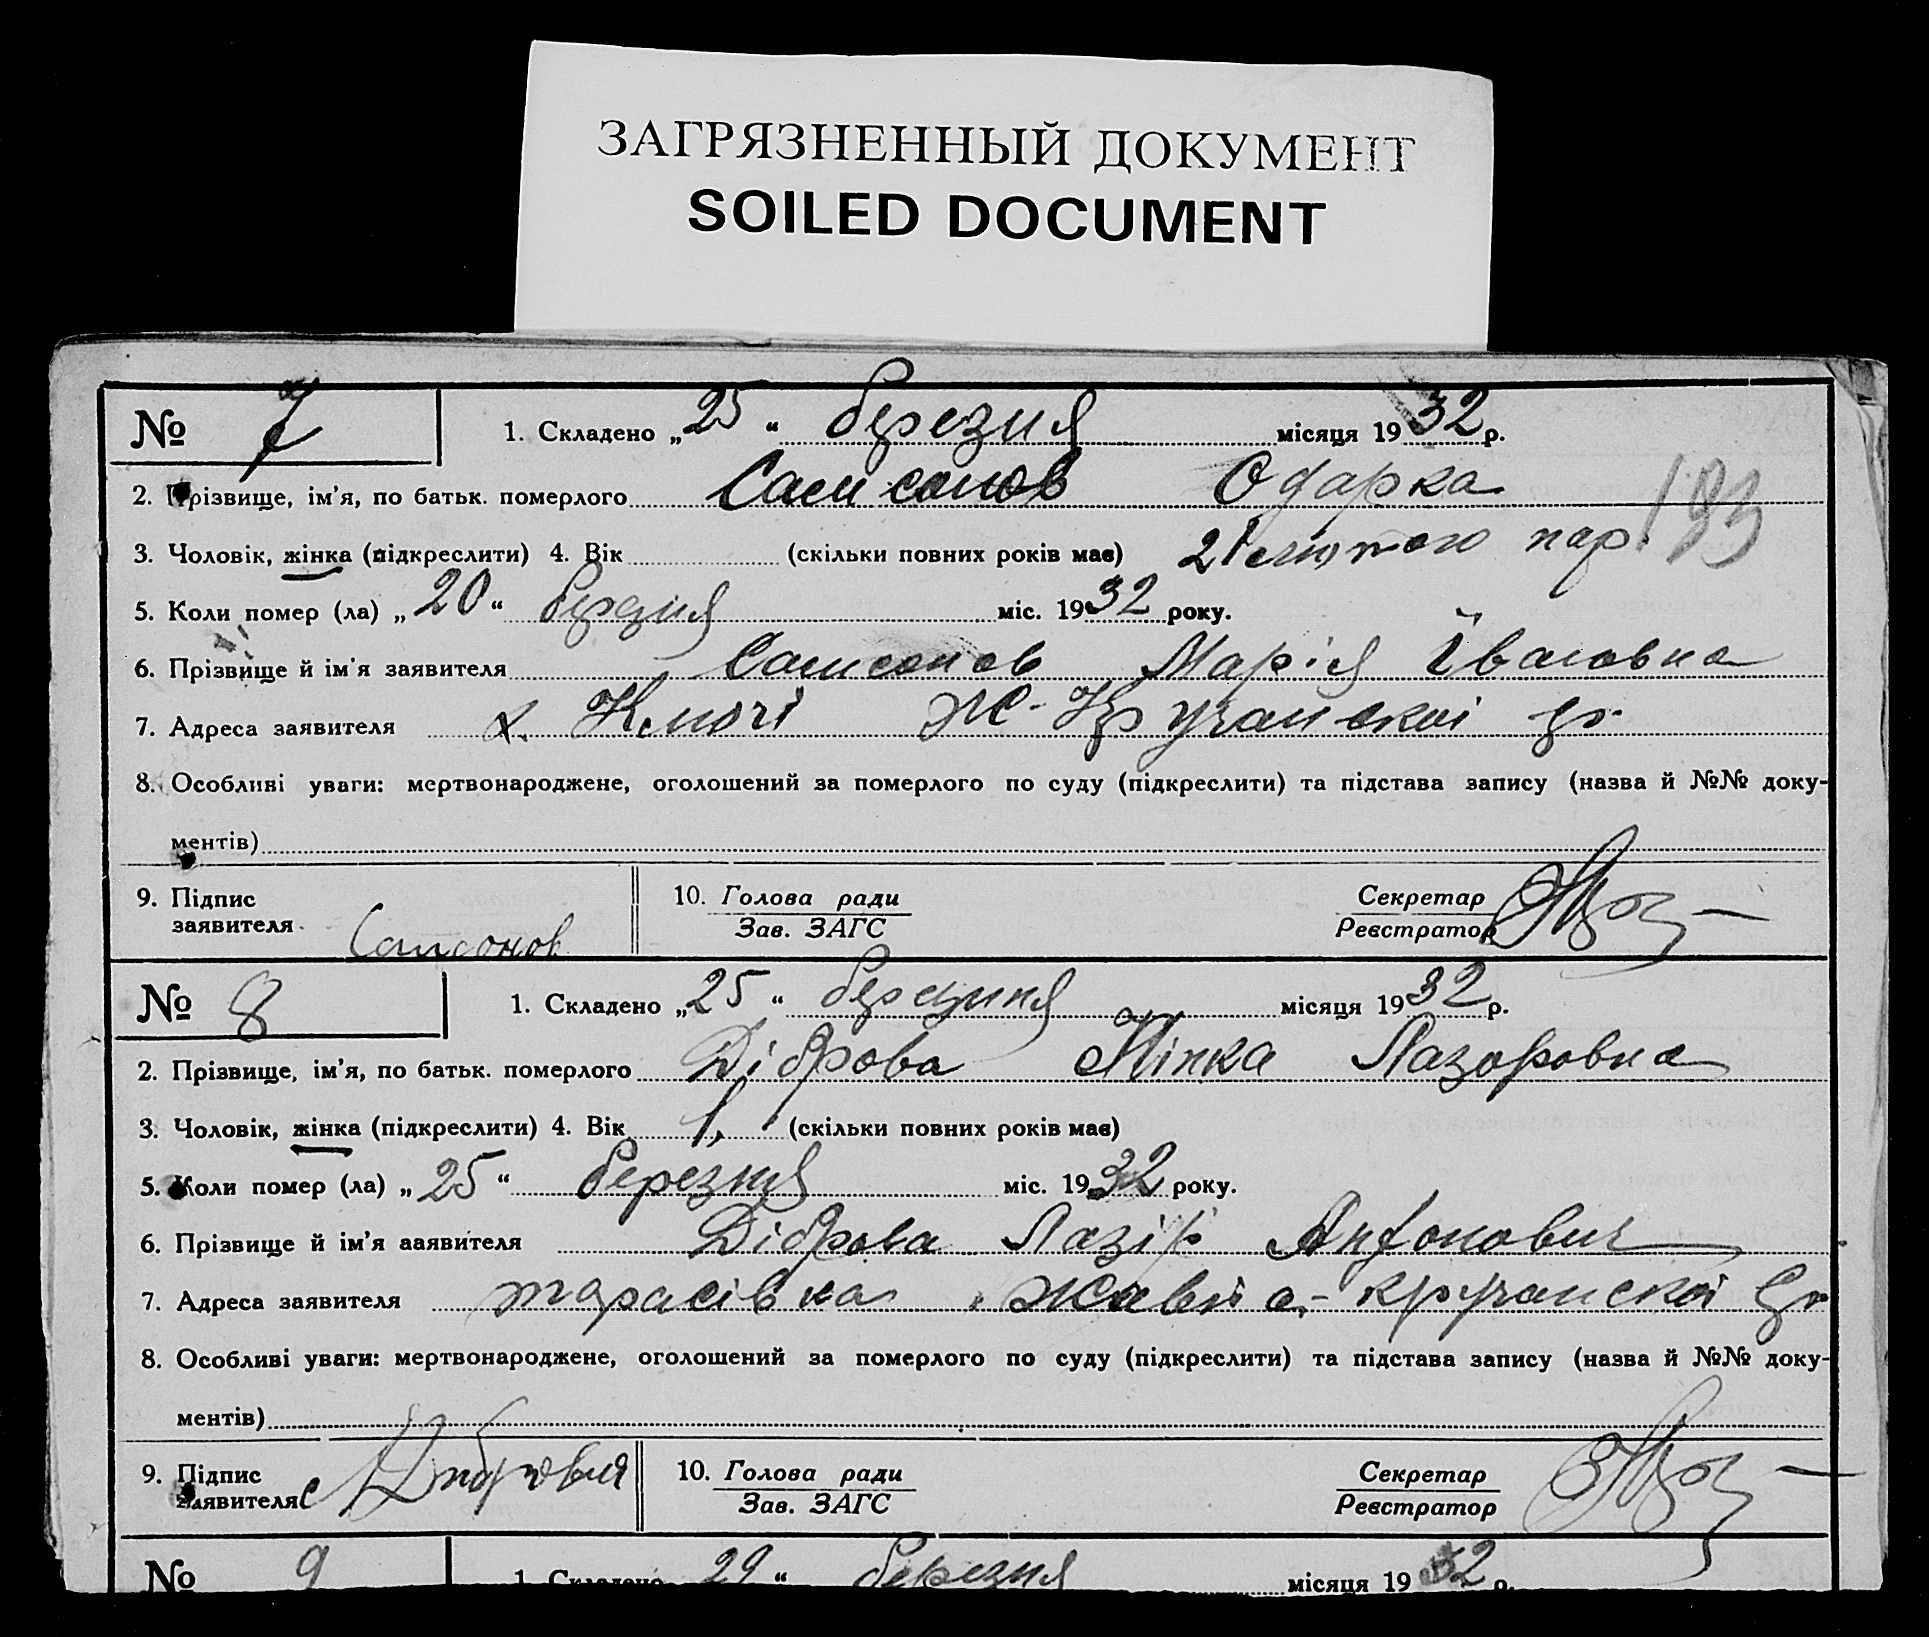 ЗАГРЯЗНЕННЫЙ ДОКУМЕНТ
SOILED DOCUMENT
№ 7 1. Складено „25“ березня місяця 1932 р.
2. Прізвище, ім'я, по батьк. померлого Самсонов Одарка
193
3. Чоловік, жінка (підкреслити) 4. Вік (скільки повних років має) 21 лютого нар.
5. Коли помер (ла) „20“ березня міс. 1932 року.
6. Прізвище й ім'я заявителя Самсонов Марія Івановна
7. Адреса заявителя х. Ключі Ж-Кручанскої
8. Особливі уваги: мертвонароджене, оголошений за померлого по суду (підкреслити) та підстава запису (назва й №№ доку-
ментів)
9. Підпис заявителя Самсонов 10. Голова ради Зав. ЗАГС Секретар Реєстратор
№ 8 1. Складено „25“ березння місяця 1932 р.
2. Прізвище, ім'я, по батьк. померлого Діброва Нінка Лазоровна
3. Чоловік, жінка (підкреслити) 4. Вік 1, (скільки повних років має)
5. Коли помер (ла) „25“ березня міс. 1932 року.
6. Прізвище й ім'я заявителя Діброва Лазір Антонович
7. Адреса заявителя тарасівка кручанскої
8. Особливі уваги: мертвонароджене, оголошений за померлого по суду (підкреслити) та підстава запису (назва й №№ доку-
ментів)
9. Підпис заявителя 10. Голова ради Зав. ЗАГС Секретар Реєстратор
№ 9 1. Складено 29“ березня місяця 1932 р.